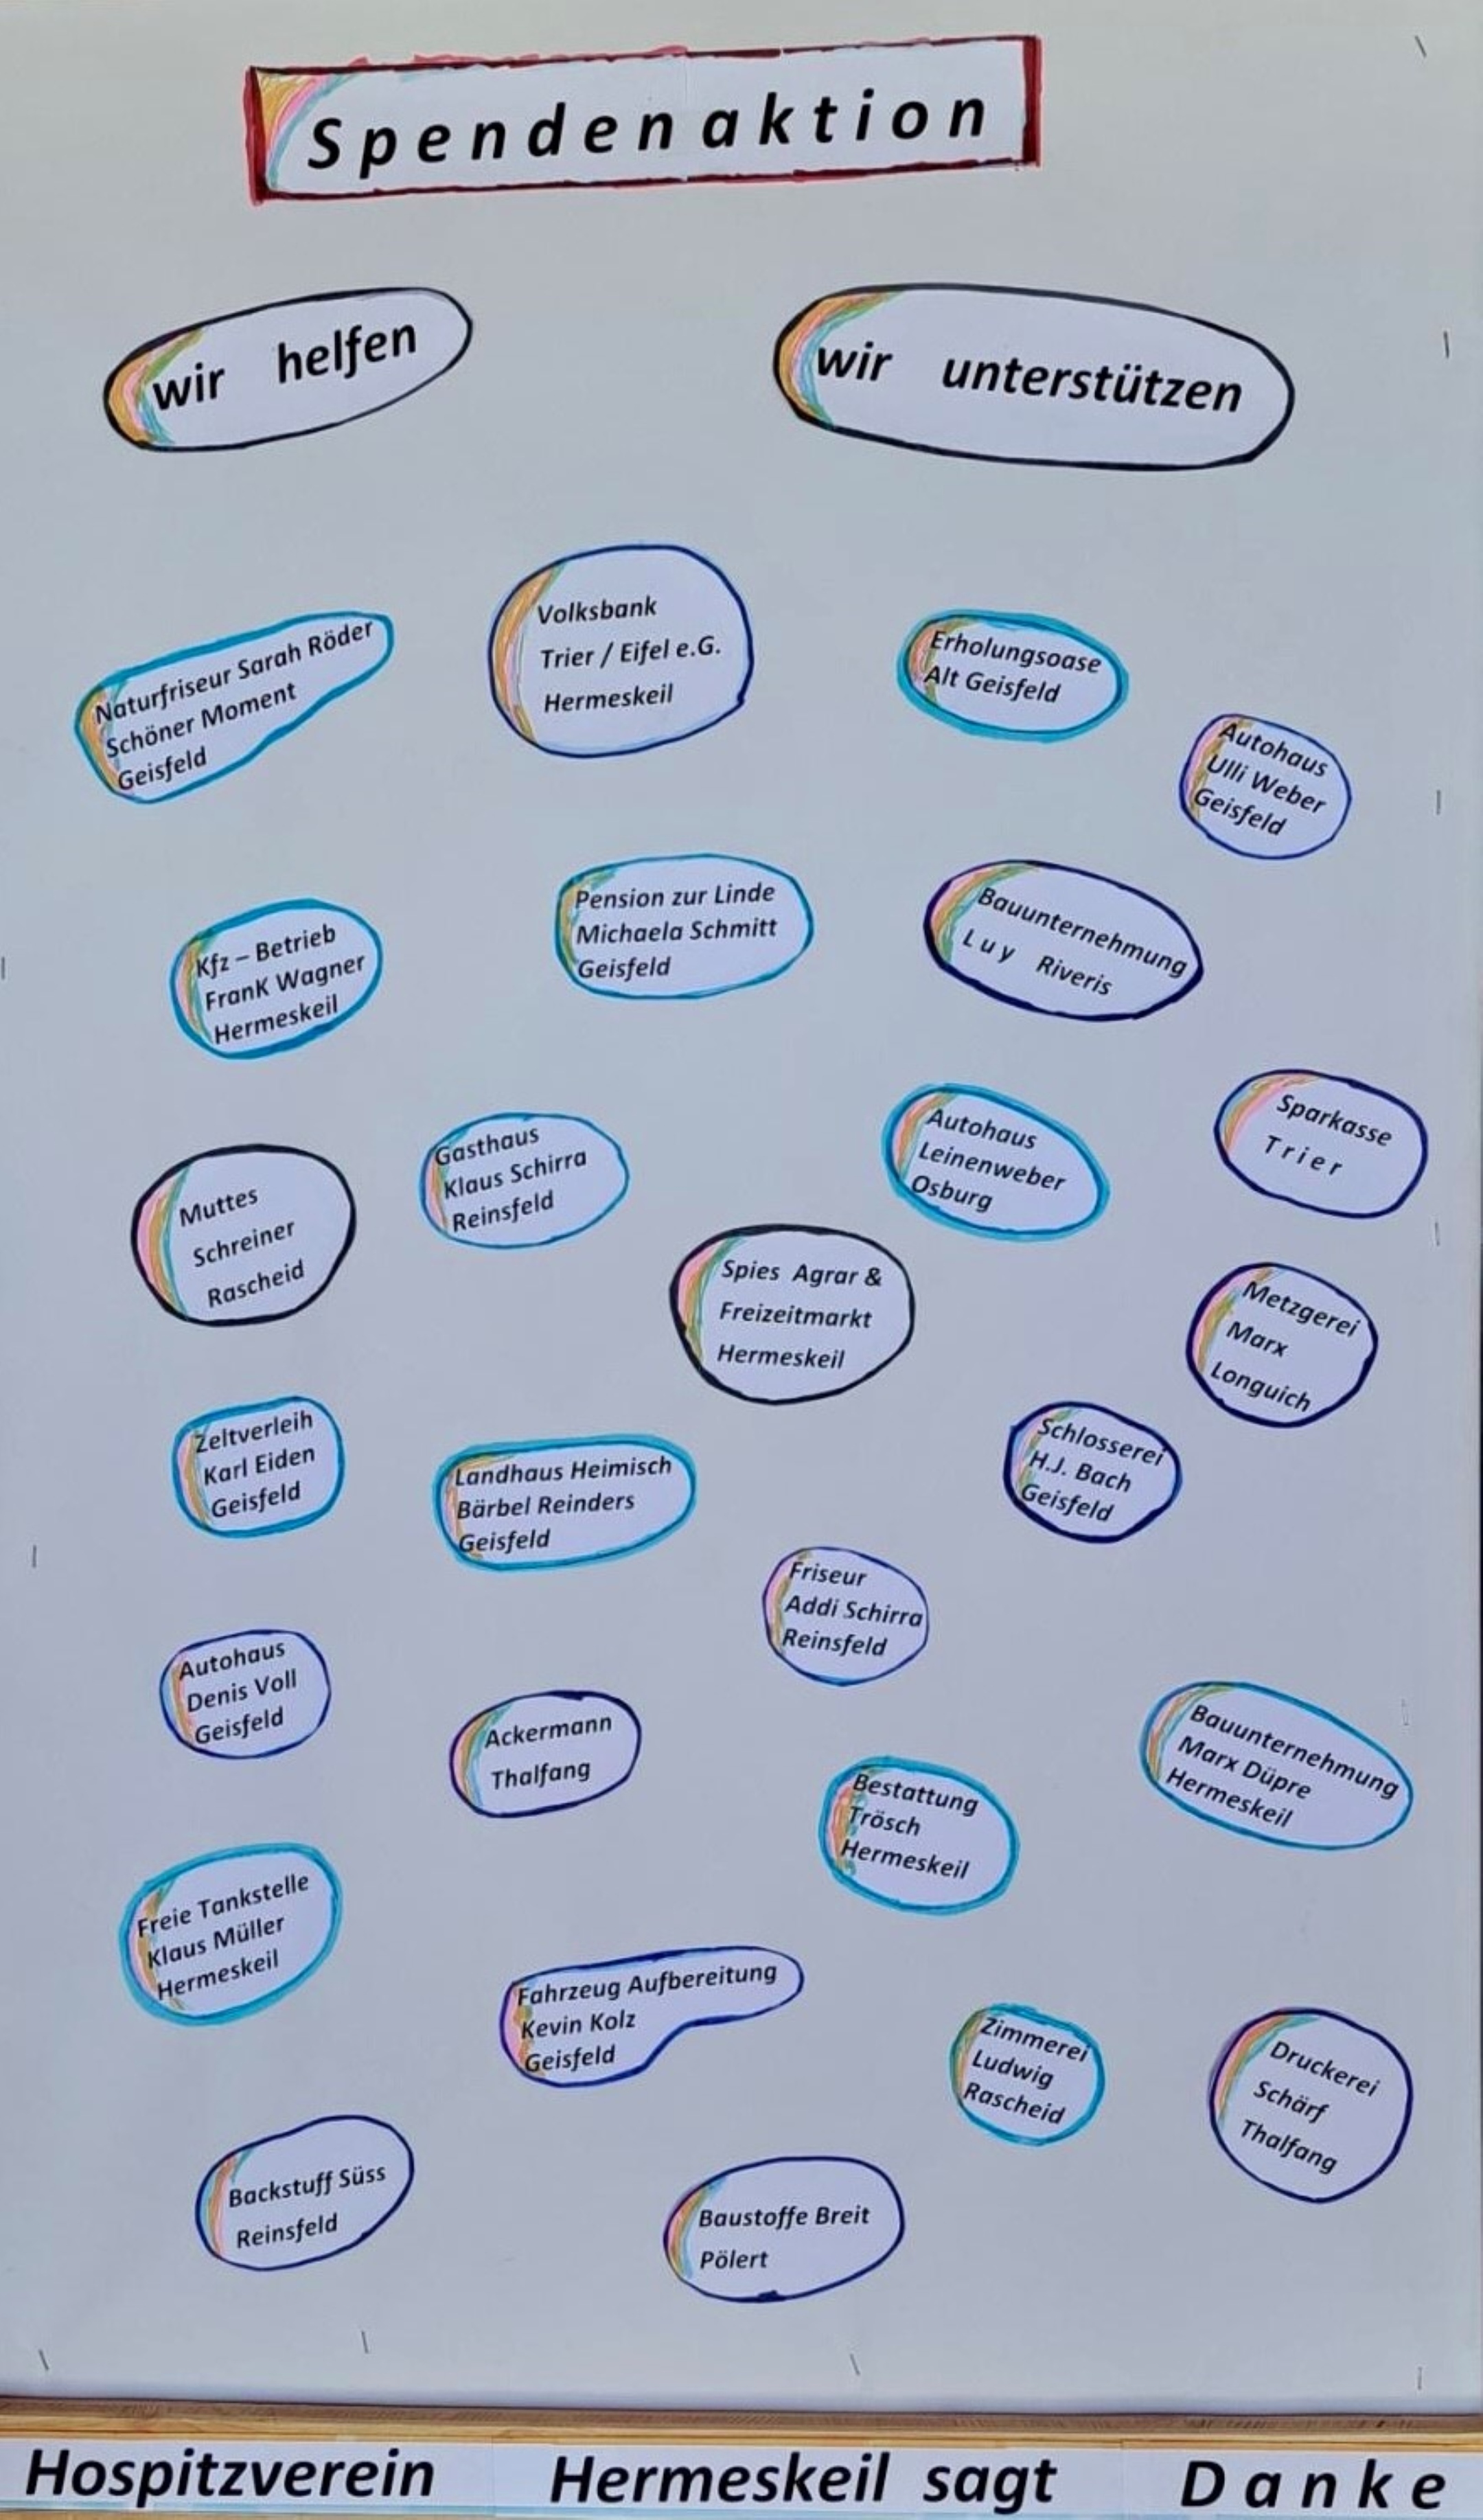 Spendenaktion
wir helfen
wir unterstützen
Naturfriseur Sarah Röder
Schöner Moment
Geisfeld
Volksbank
Trier / Eifel e.G.
Hermeskeil
Erholungsoase
Alt Geisfeld
Autohaus
Ulli Weber
Geisfeld
Kfz – Betrieb
FranK Wagner
Hermeskeil
Pension zur Linde
Michaela Schmitt
Geisfeld
Bauunternehmung
Luy Riveris
Muttes
Schreiner
Rascheid
Gasthaus
Klaus Schirra
Reinsfeld
Autohaus
Leinenweber
Osburg
Sparkasse
Trier
Spies Agrar &
Freizeitmarkt
Hermeskeil
Metzgerei
Marx
Longuich
Zeltverleih
Karl Eiden
Geisfeld
Landhaus Heimisch
Bärbel Reinders
Geisfeld
Schlosserei
H.J. Bach
Geisfeld
Friseur
Addi Schirra
Reinsfeld
Autohaus
Denis Voll
Geisfeld
Ackermann
Thalfang
Bestattung
Trösch
Hermeskeil
Bauunternehmung
Marx Düpre
Hermeskeil
Freie Tankstelle
Klaus Müller
Hermeskeil
Fahrzeug Aufbereitung
Kevin Kolz
Geisfeld
Zimmerei
Ludwig
Rascheid
Druckerei
Schärf
Thalfang
Backstuff Süss
Reinsfeld
Baustoffe Breit
Pölert
Hospitzverein Hermeskeil sagt Danke